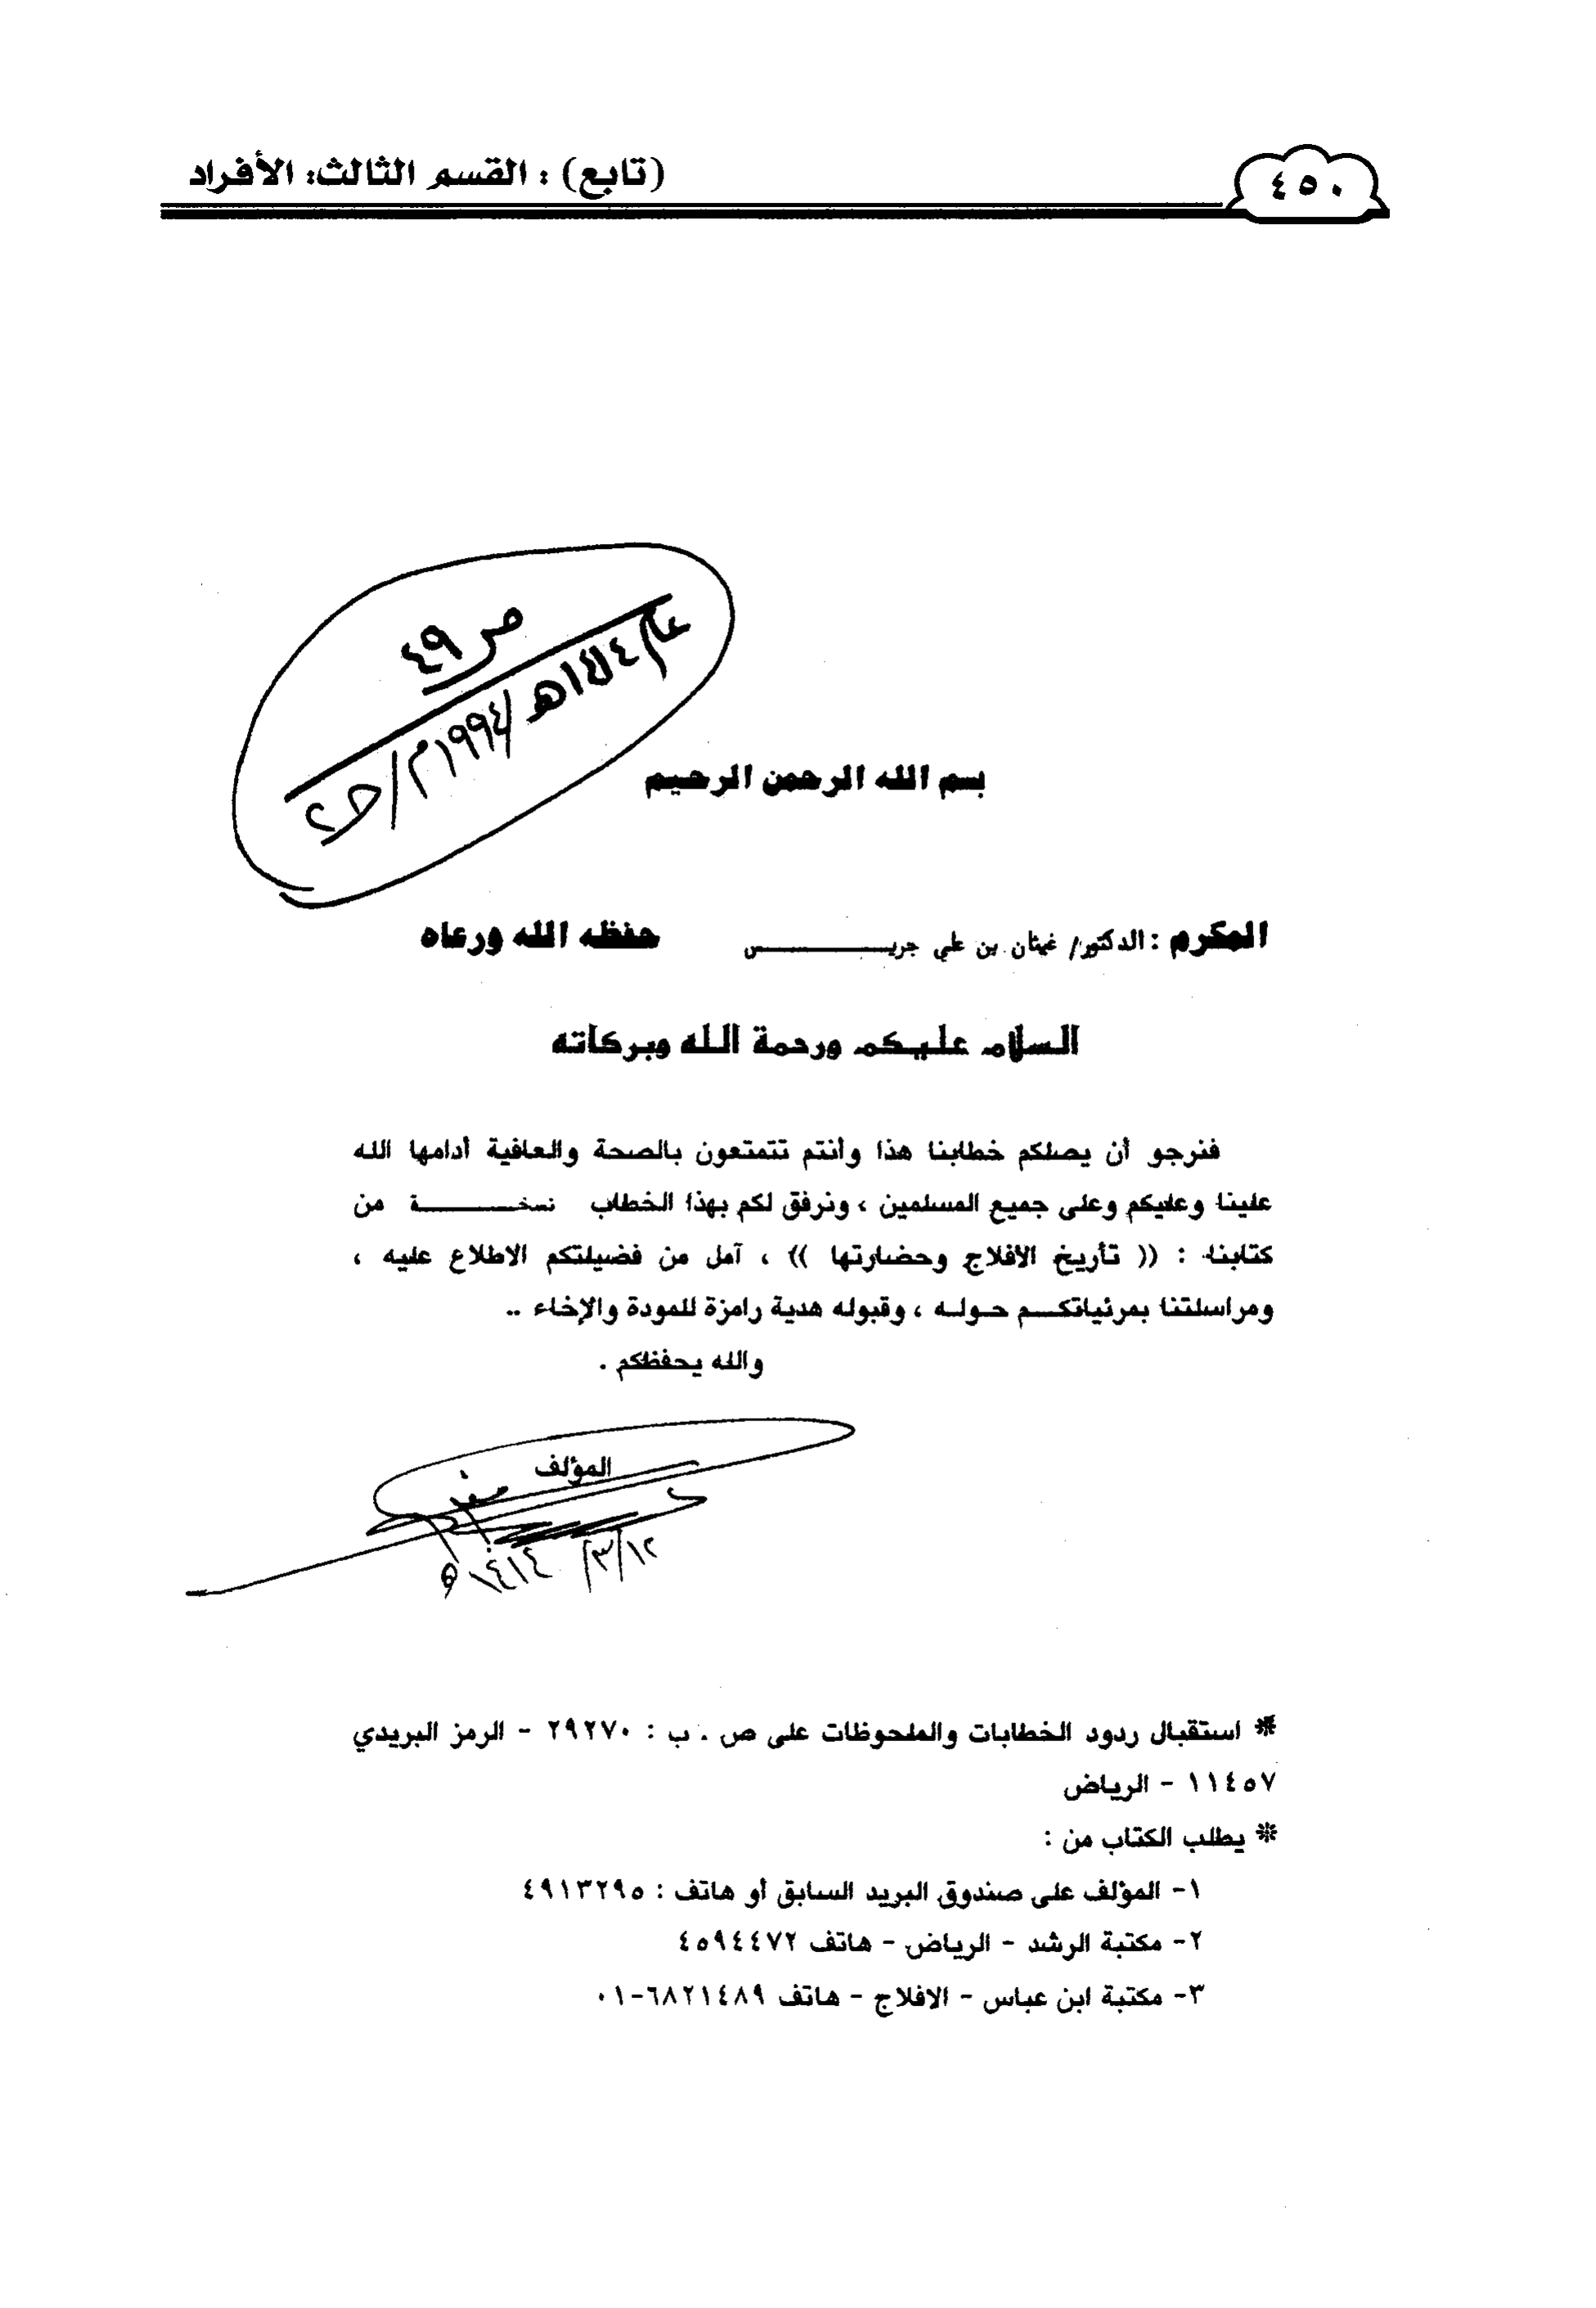 ٤٥٠
(تابع) : القسم الثالث: الأفراد
ص ٤٩
عام ١٤١٤هـ/١٩٩٤م/ج٢
بسم الله الرحمن الرحيم
المكرم : الدكتور/ غيثان بن علي جريـــــــس حفظه الله ورعاه
السلام عليكم ورحمة الله وبركاته
فنرجو أن يصلكم خطابنا هذا وأنتم تتمتعون بالصحة والعافية أدامها الله
علينا وعليكم وعلى جميع المسلمين ، ونرفق لكم بهذا الخطاب نسخـــــــة من
كتابنا : (( تأريخ الافلاج وحضارتها )) ، آمل من فضيلتكم الاطلاع عليه ،
ومراسلتنا بمرئياتكـــم حـولـه ، وقبوله هدية رامزة للمودة والإخاء ..
والله يحفظكم .
المؤلف
١٢/٣/١٤١٤هـ
* استقبال ردود الخطابات والملحوظات على ص . ب : ٢٩٢٧٠ - الرمز البريدي
١١٤٥٧ - الرياض
* يطلب الكتاب من :
١- المؤلف على صندوق البريد السابق أو هاتف : ٤٩١٣٢٩٥
٢- مكتبة الرشد - الرياض - هاتف ٤٥٩٤٤٧٢
٣- مكتبة ابن عباس - الافلاج - هاتف ٦٨٢١٤٨٩-٠١